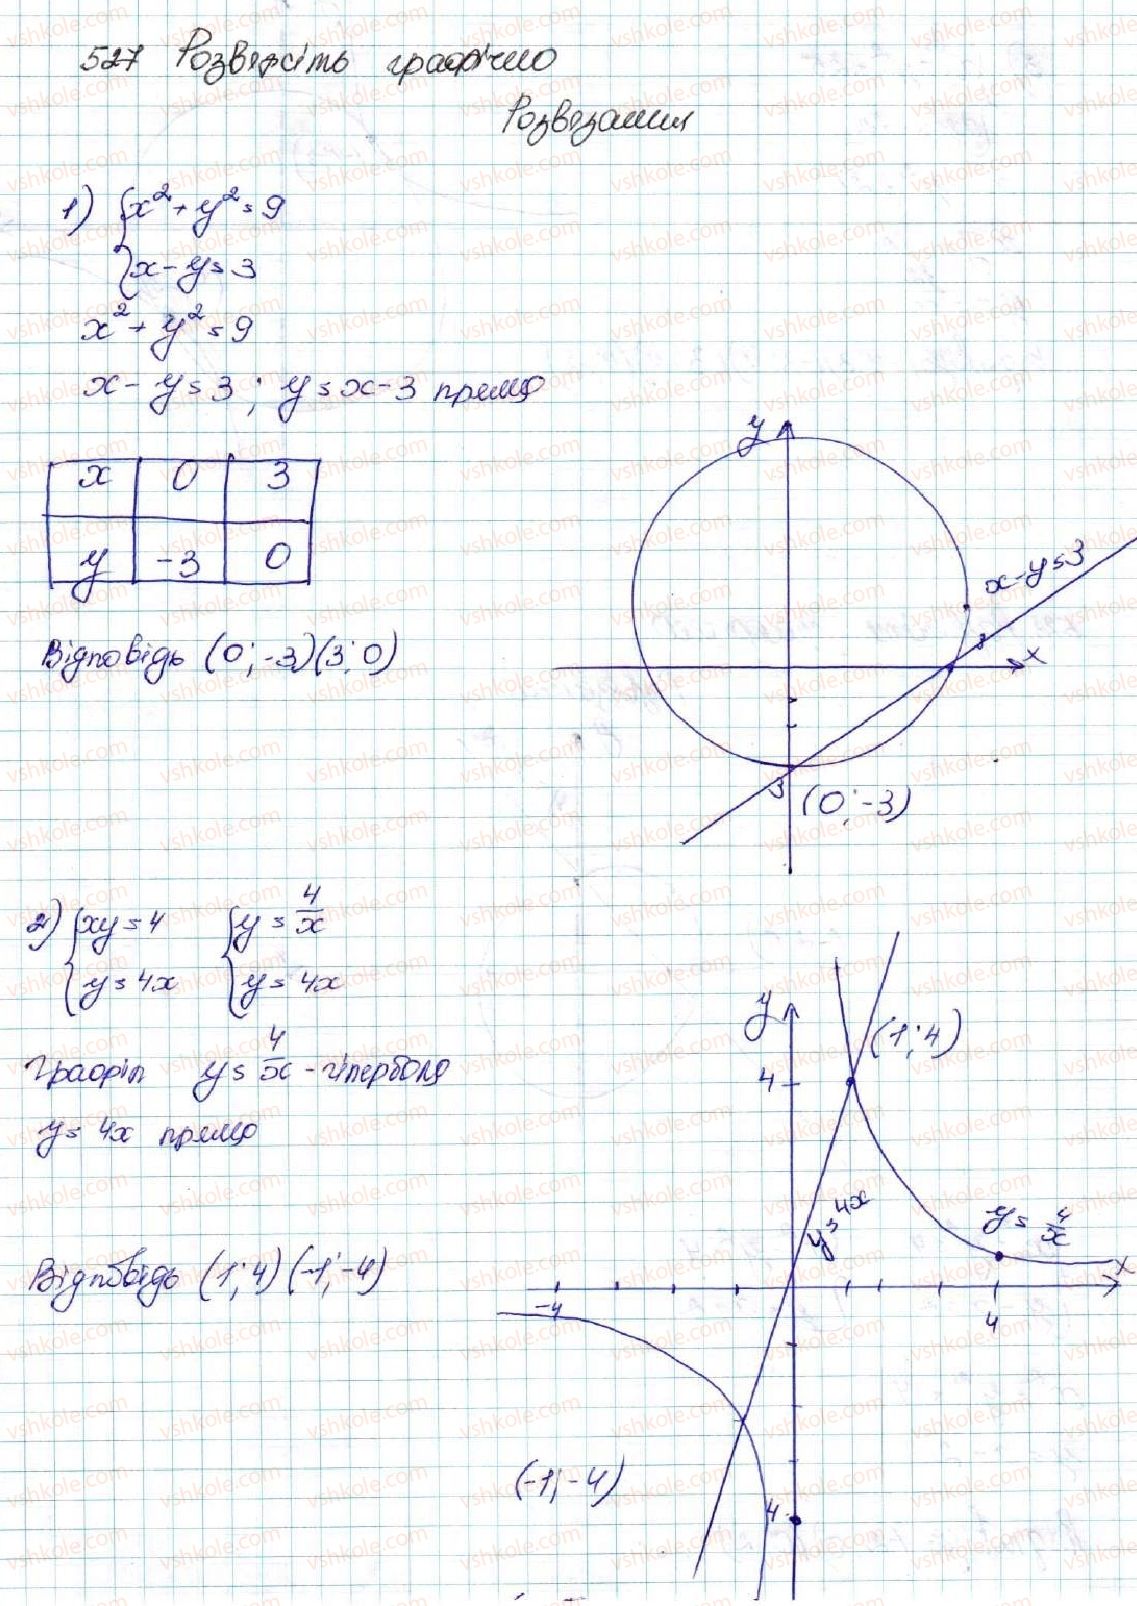 527 Розв'яжіть графічно
Розв'язання
1) { x² + y² = 9
{ x - y = 3
x² + y² = 9
x - y = 3 ; y = x - 3 пряма
x 0 3
y -3 0
Відповідь (0; -3)(3; 0)
y
x - y = 3
3
x
3
(0; -3)
2) { xy = 4 { y = 4/x
{ y = 4x { y = 4x
Графік y = 4/x - гіпербола
y = 4x пряма
Відповідь (1; 4)(-1; -4)
y
(1; 4)
4
y = 4x
y = 4/x
x
-4
4
(-1; -4)
4
vshkole.com